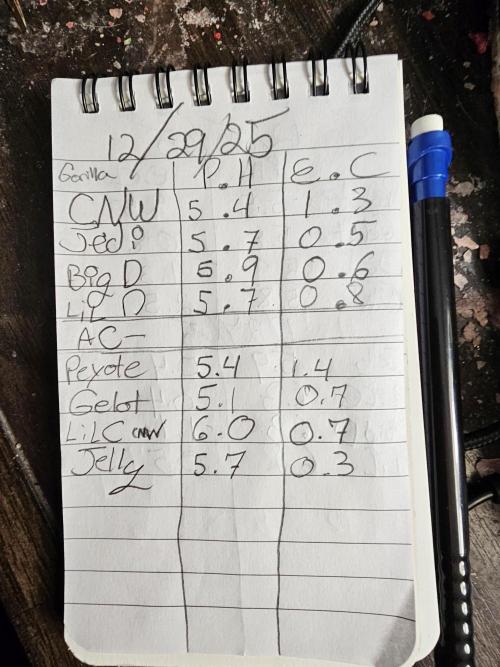 12/29/25
Gorilla P.H E.C
CNW 5.4 1.3
Jedi 5.7 0.5
Big D 5.9 0.6
LiL D 5.7 0.8
AC-
Peyote 5.4 1.4
Gelot 5.1 0.7
LiLC CNW 6.0 0.7
Jelly 5.7 0.3